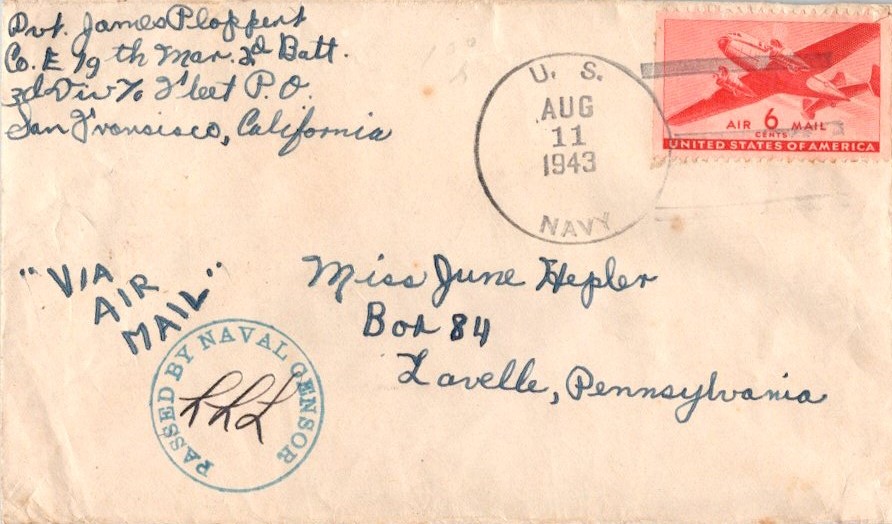 Pvt. James Ploppert
Co. E 19th Mar. 2d Batt.
3d Div % Fleet P.O.
San Fransisco, California
U. S.
AUG
11
1943
NAVY
AIR 6 MAIL
CENTS
UNITED STATES OF AMERICA
"VIA
AIR
MAIL"
Miss June Hepler
Box 84
Lavelle, Pennsylvania
PASSED BY NAVAL CENSOR